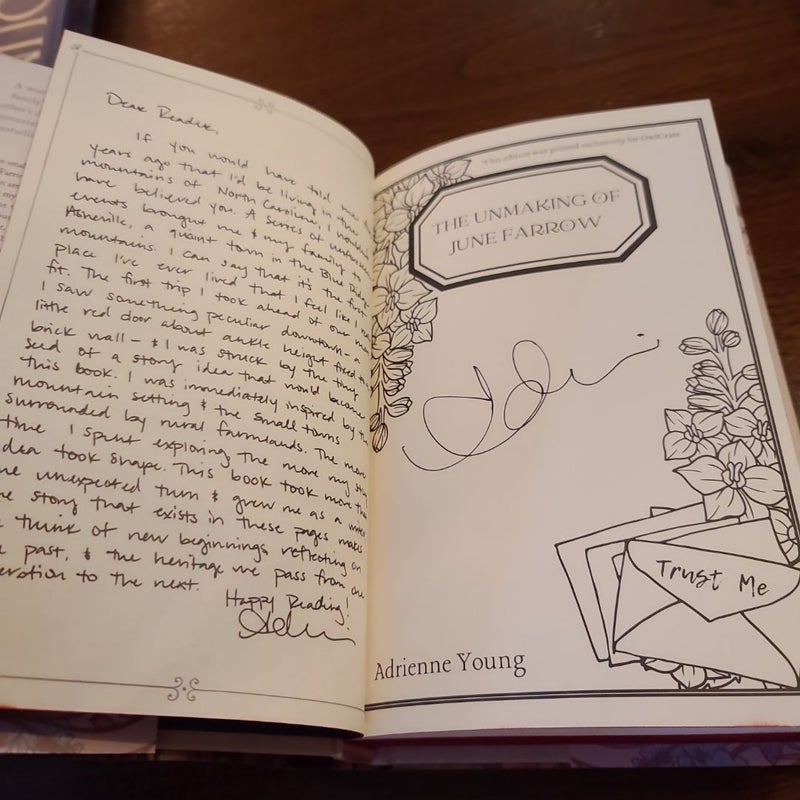 Dear Reader,
If you would have told me
years ago that I'd be living in the
mountains of North Carolina, I wouldn't
have believed you. A series of unforeseen
events brought me & my family to
Asheville, a quaint town in the Blue Ridge
mountains. I can say that it's the first
place I've ever lived that I feel like I
fit. The first trip I took ahead of our move
I saw something peculiar downtown - a
little red door about ankle height fixed
brick wall - & I was struck by the tiny
seed of a story idea that would become
this book. I was immediately inspired by the
mountain setting & the small towns
surrounded by rural farmlands. The more
time I spent exploring, the more my story
idea took shape. This book took more than
one unexpected turn & grew me as a writer
The story that exists in these pages makes
think of new beginnings, reflecting on
past, & the heritage we pass from one
to the next.
Happy Reading!
This edition was printed exclusively for OwlCrate
THE UNMAKING OF
JUNE FARROW
Trust Me
Adrienne Young